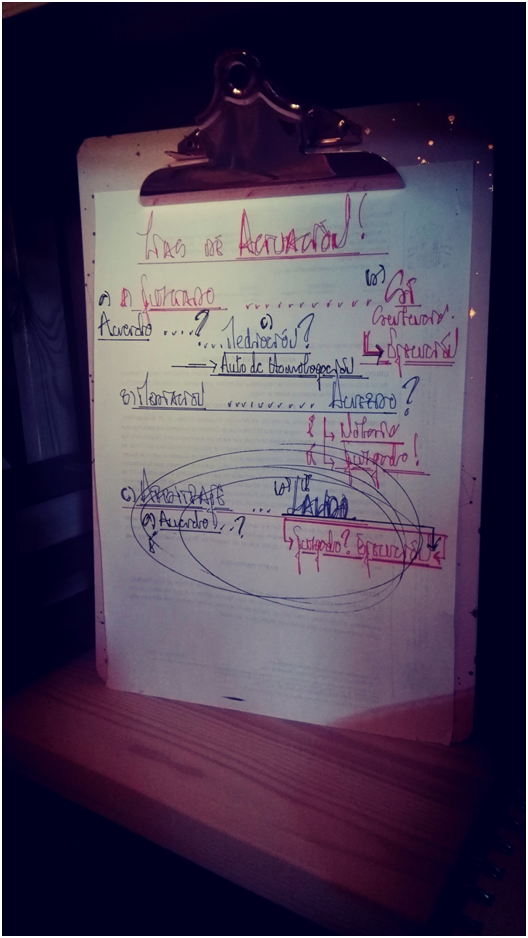 Vías de Actuación!
a) Juzgado ............ b) Sí
Acuerdo ....?
Contencios.
c) Mediación?
↳ Ejecución
→ Auto de Homologación
b) Mediación ............ Acuerdo?
↳ Notario
↳ Juzgado!
c) Arbitraje ... b) LAUDO
a) Acuerdo!...?
↳ Juzgado? Ejecución